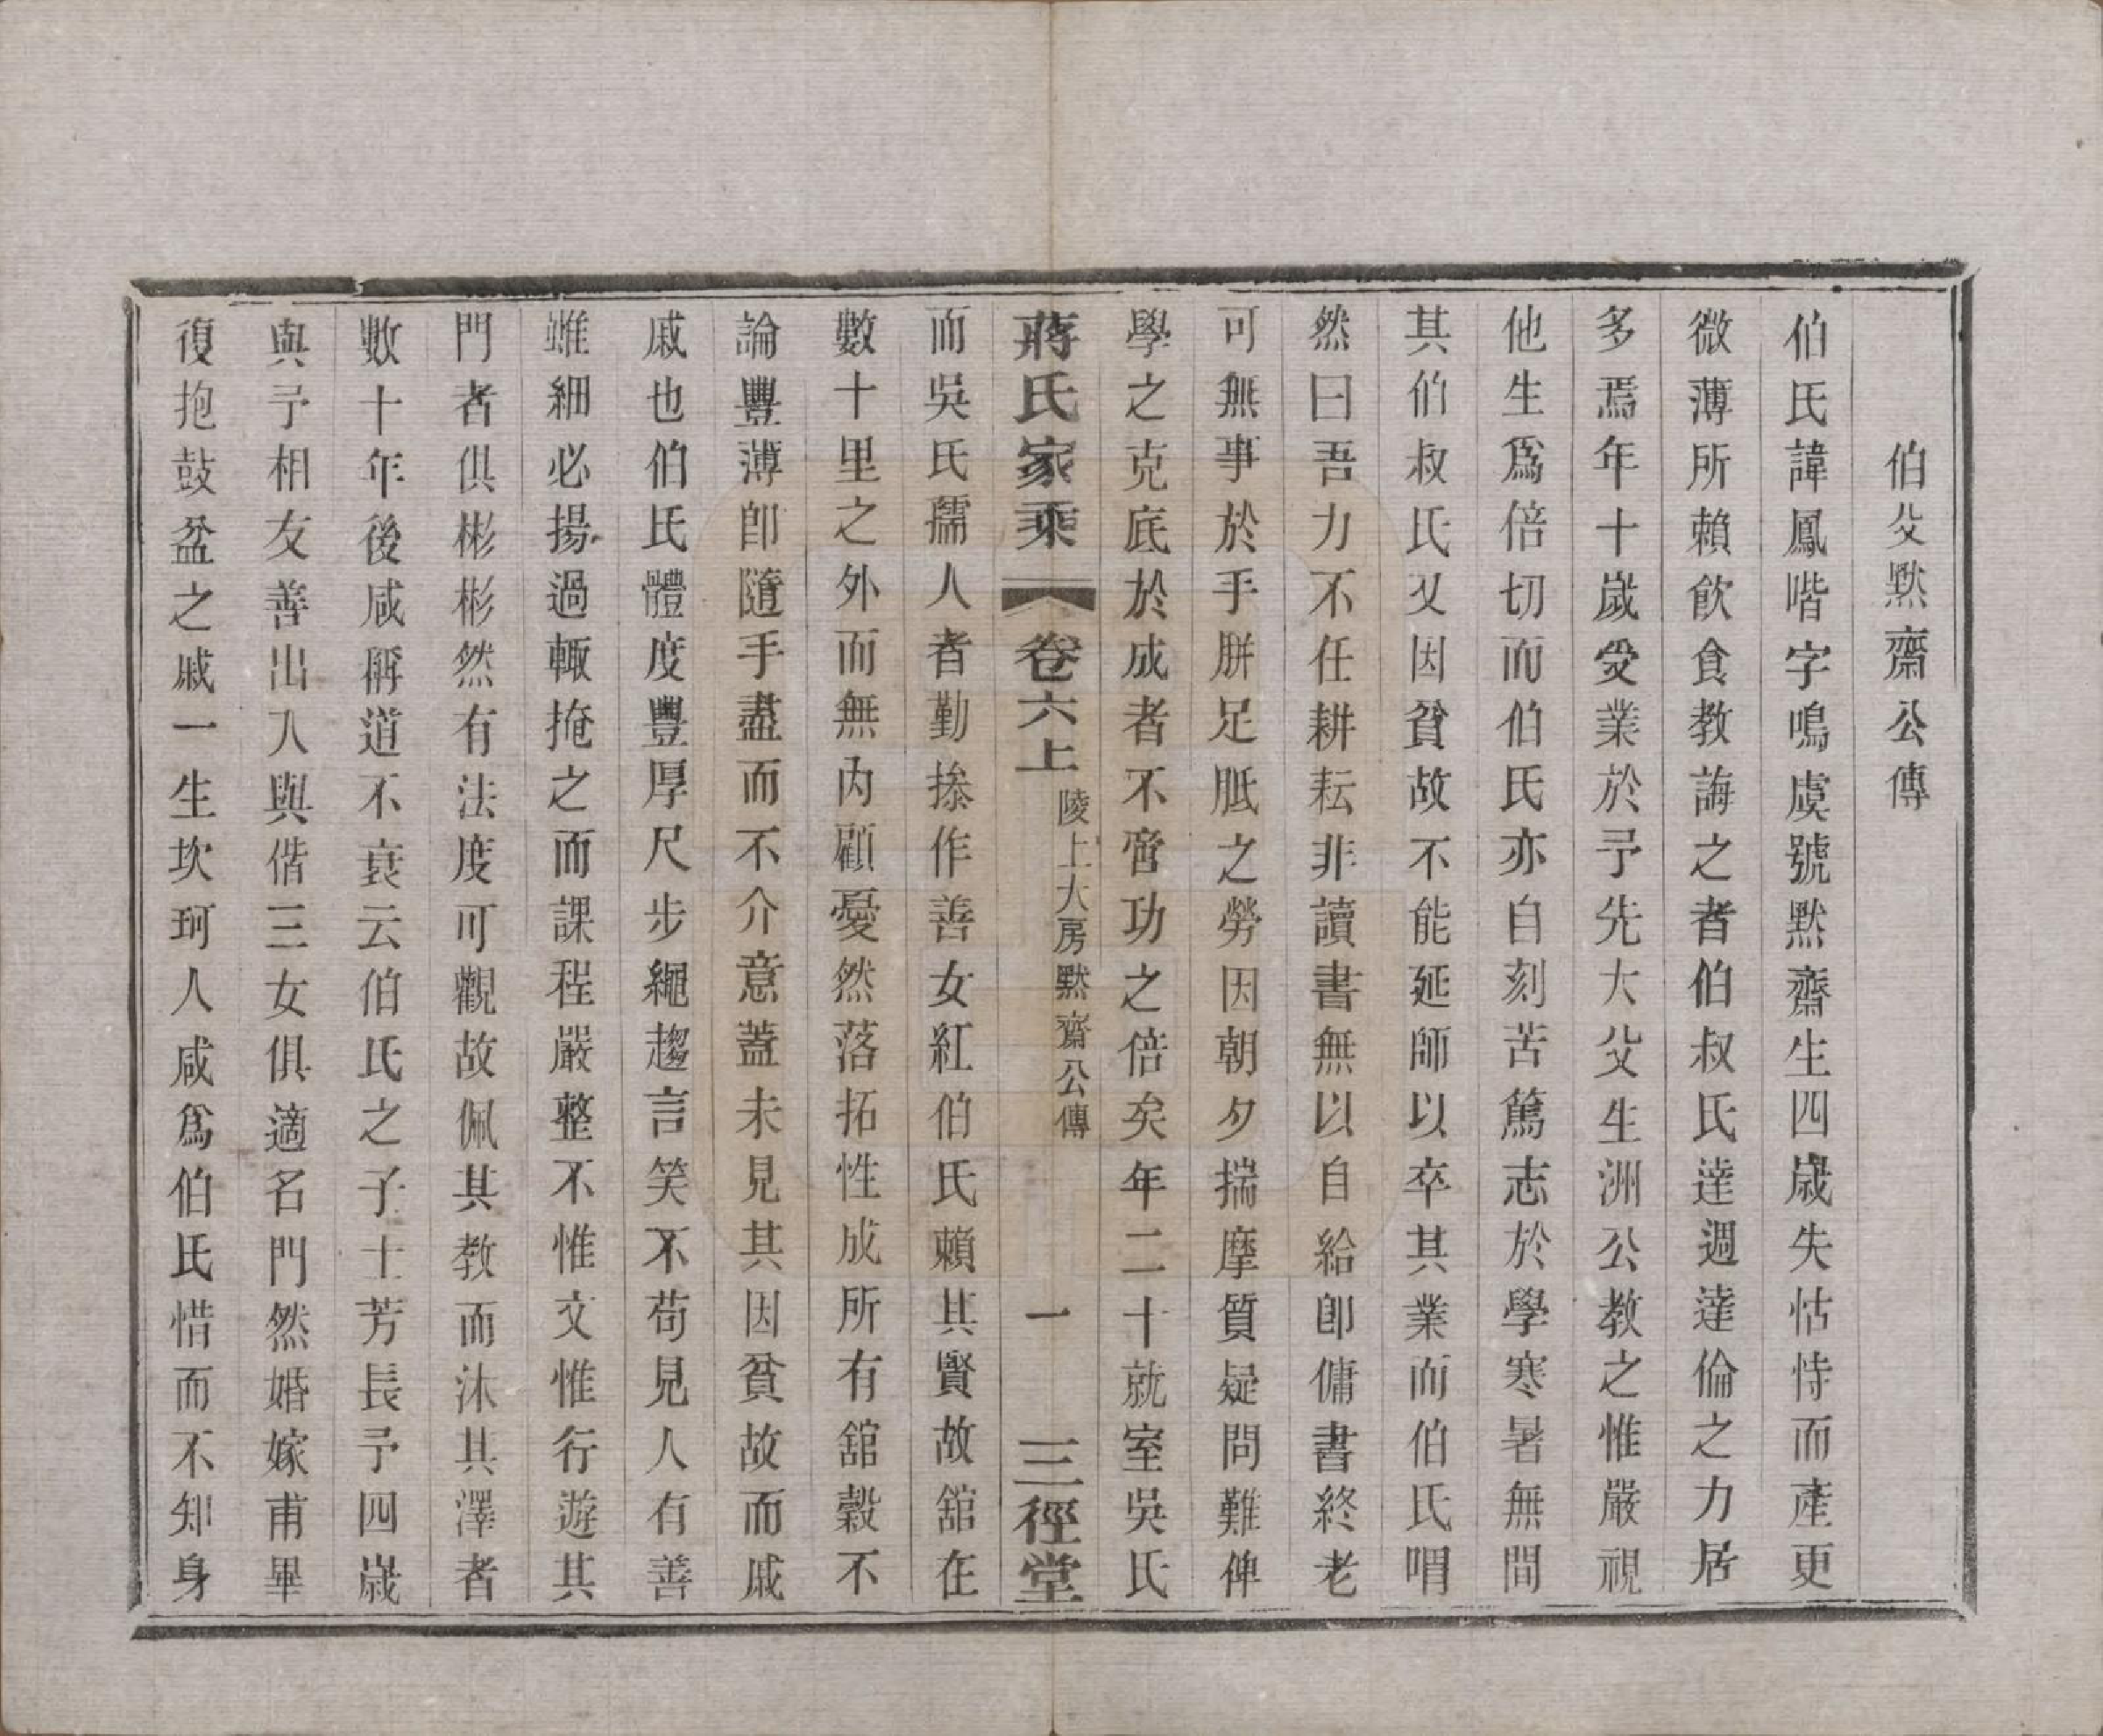 伯父默齋公傳
伯氏諱鳳喈字鳴虞號默齋生四歲失怙恃而產更
微薄所賴飲食教誨之者伯叔氏達週達倫之力居
多焉年十歲受業於予先大父生洲公教之惟嚴視
他生爲倍切而伯氏亦自刻苦篤志於學寒暑無間
其伯叔氏又因貧故不能延師以卒其業而伯氏喟
然曰吾力不任耕耘非讀書無以自給卽傭書終老
可無事於手胼足胝之勞因朝夕揣摩質疑問難俾
學之克底於成者不啻功之倍矣年二十就室吳氏
蔣氏家乘 卷六上 陵上大房默齋公傳 一 三徑堂
而吳氏孺人者勤操作善女紅伯氏賴其賢故舘在
數十里之外而無內顧憂然落拓性成所有舘穀不
論豐薄卽隨手盡而不介意蓋未見其因貧故而戚
戚也伯氏體度豐厚尺步繩趨言笑不苟見人有善
雖細必揚過輙掩之而課程嚴整不惟文惟行遊其
門者俱彬彬然有法度可觀故佩其教而沐其澤者
數十年後咸稱道不衰云伯氏之子士芳長予四歲
與予相友善出入與偕三女俱適名門然婚嫁甫畢
復抱鼓盆之戚一生坎坷人咸爲伯氏惜而不知身